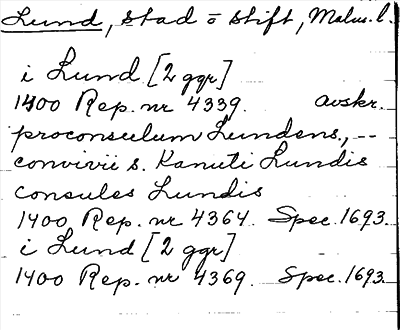 Lund, stad o stift, Malm. l.
i Lund [2 ggr]
1400 Rep. nr 4339. avskr.
proconsulum Lundens., --
convivii s. Kanuti Lundis
consules Lundis
1400 Rep. nr 4364. Spec. 1693.
i Lund [2 ggr]
1400 Rep. nr 4369. Spec. 1693.